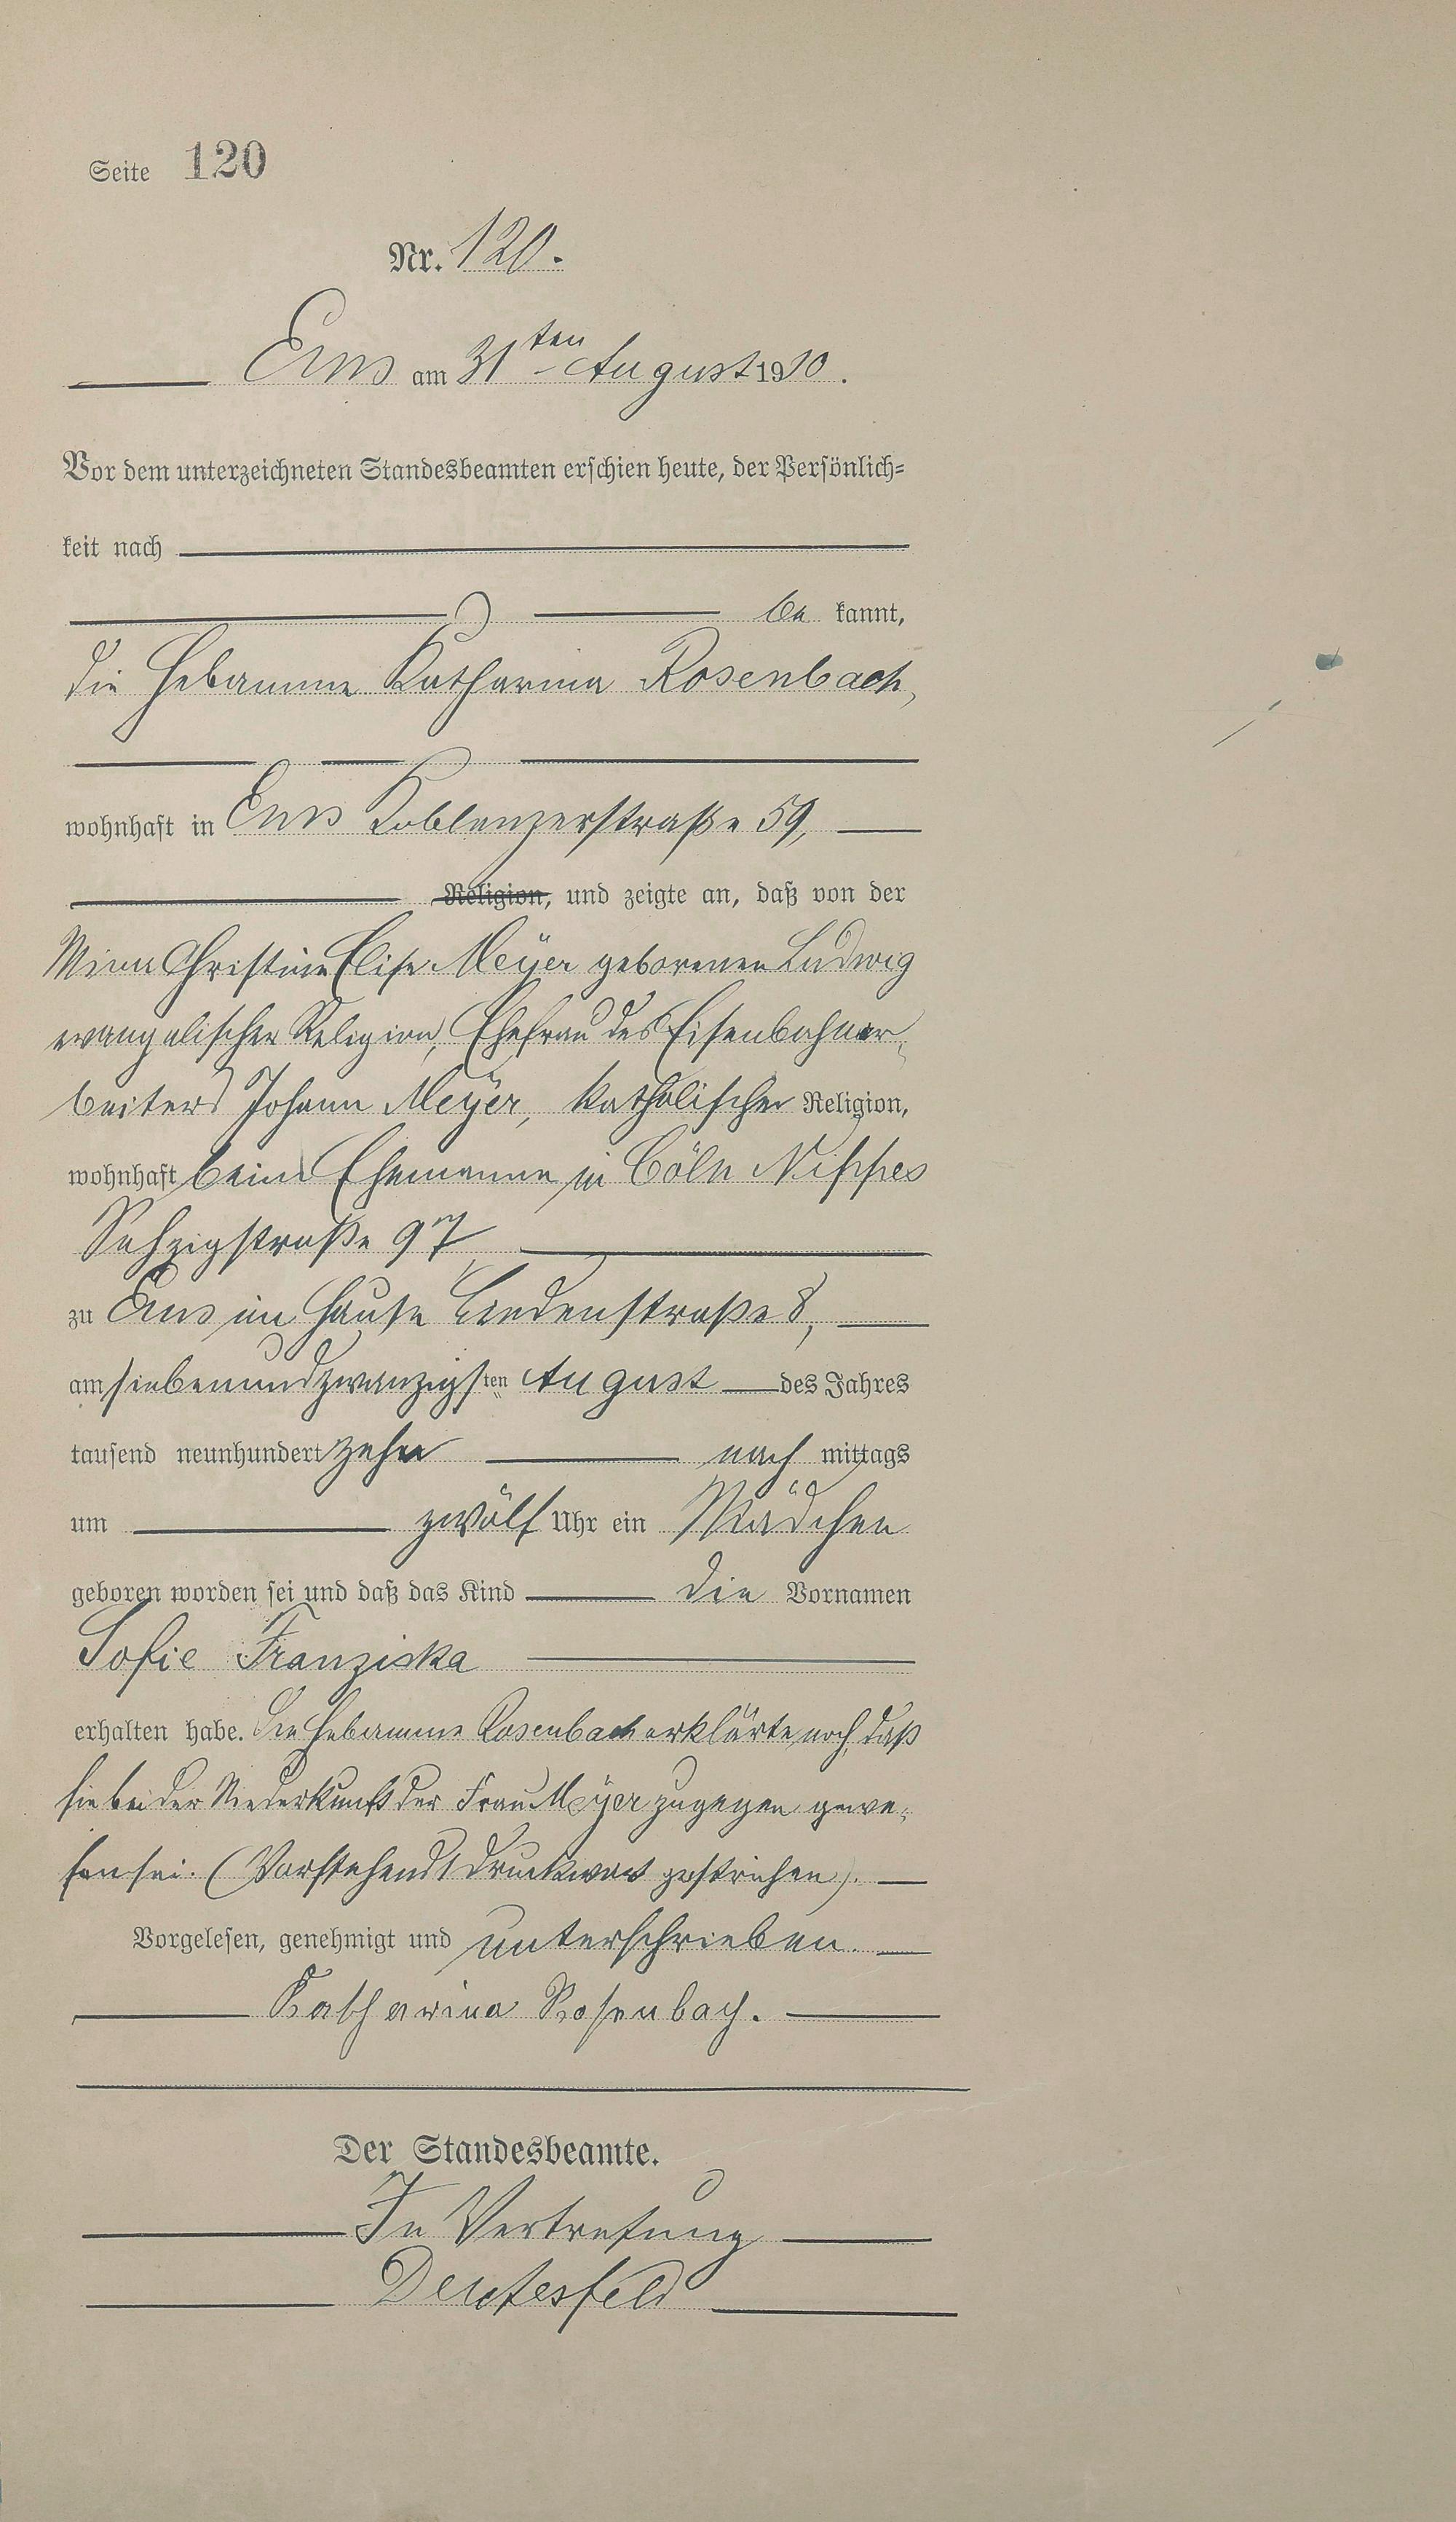 Seite 120
Nr. 120.
Ems am 31ten August 1910.
Vor dem unterzeichneten Standesbeamten erschien heute, der Persönlich-
keit nach
be kannt,
die Hebamme Katharina Rosenbach,
wohnhaft in Ems Koblenzerstraße 59,
Religion, und zeigte an, daß von der
Mina Christine Elise Meyer geborenen Ludwig
evangelischer Religion, Ehefrau des Eisenbahnar-
beiters Johann Meyer, katholischer Religion,
wohnhaft beim Ehemanne in Cöln Nippes
97,
zu Ems im Hause Lindenstraße 8,
am siebenundzwanzigsten August des Jahres
tausend neunhundert zehn nach mittags
um zwölf Uhr ein Mädchen
geboren worden sei und daß das Kind die Vornamen
Sofie Franziska
erhalten habe. Die Hebamme Rosenbach erklärte noch, daß
sie bei der Niederkunft der Frau Meyer zugegen gewe-
sen sei. (Vorstehend 1 Druckwort gestrichen).
Vorgelesen, genehmigt und unterschrieben.
Katharina Rosenbach.
Der Standesbeamte.
In Vertretung
Deutesfeld